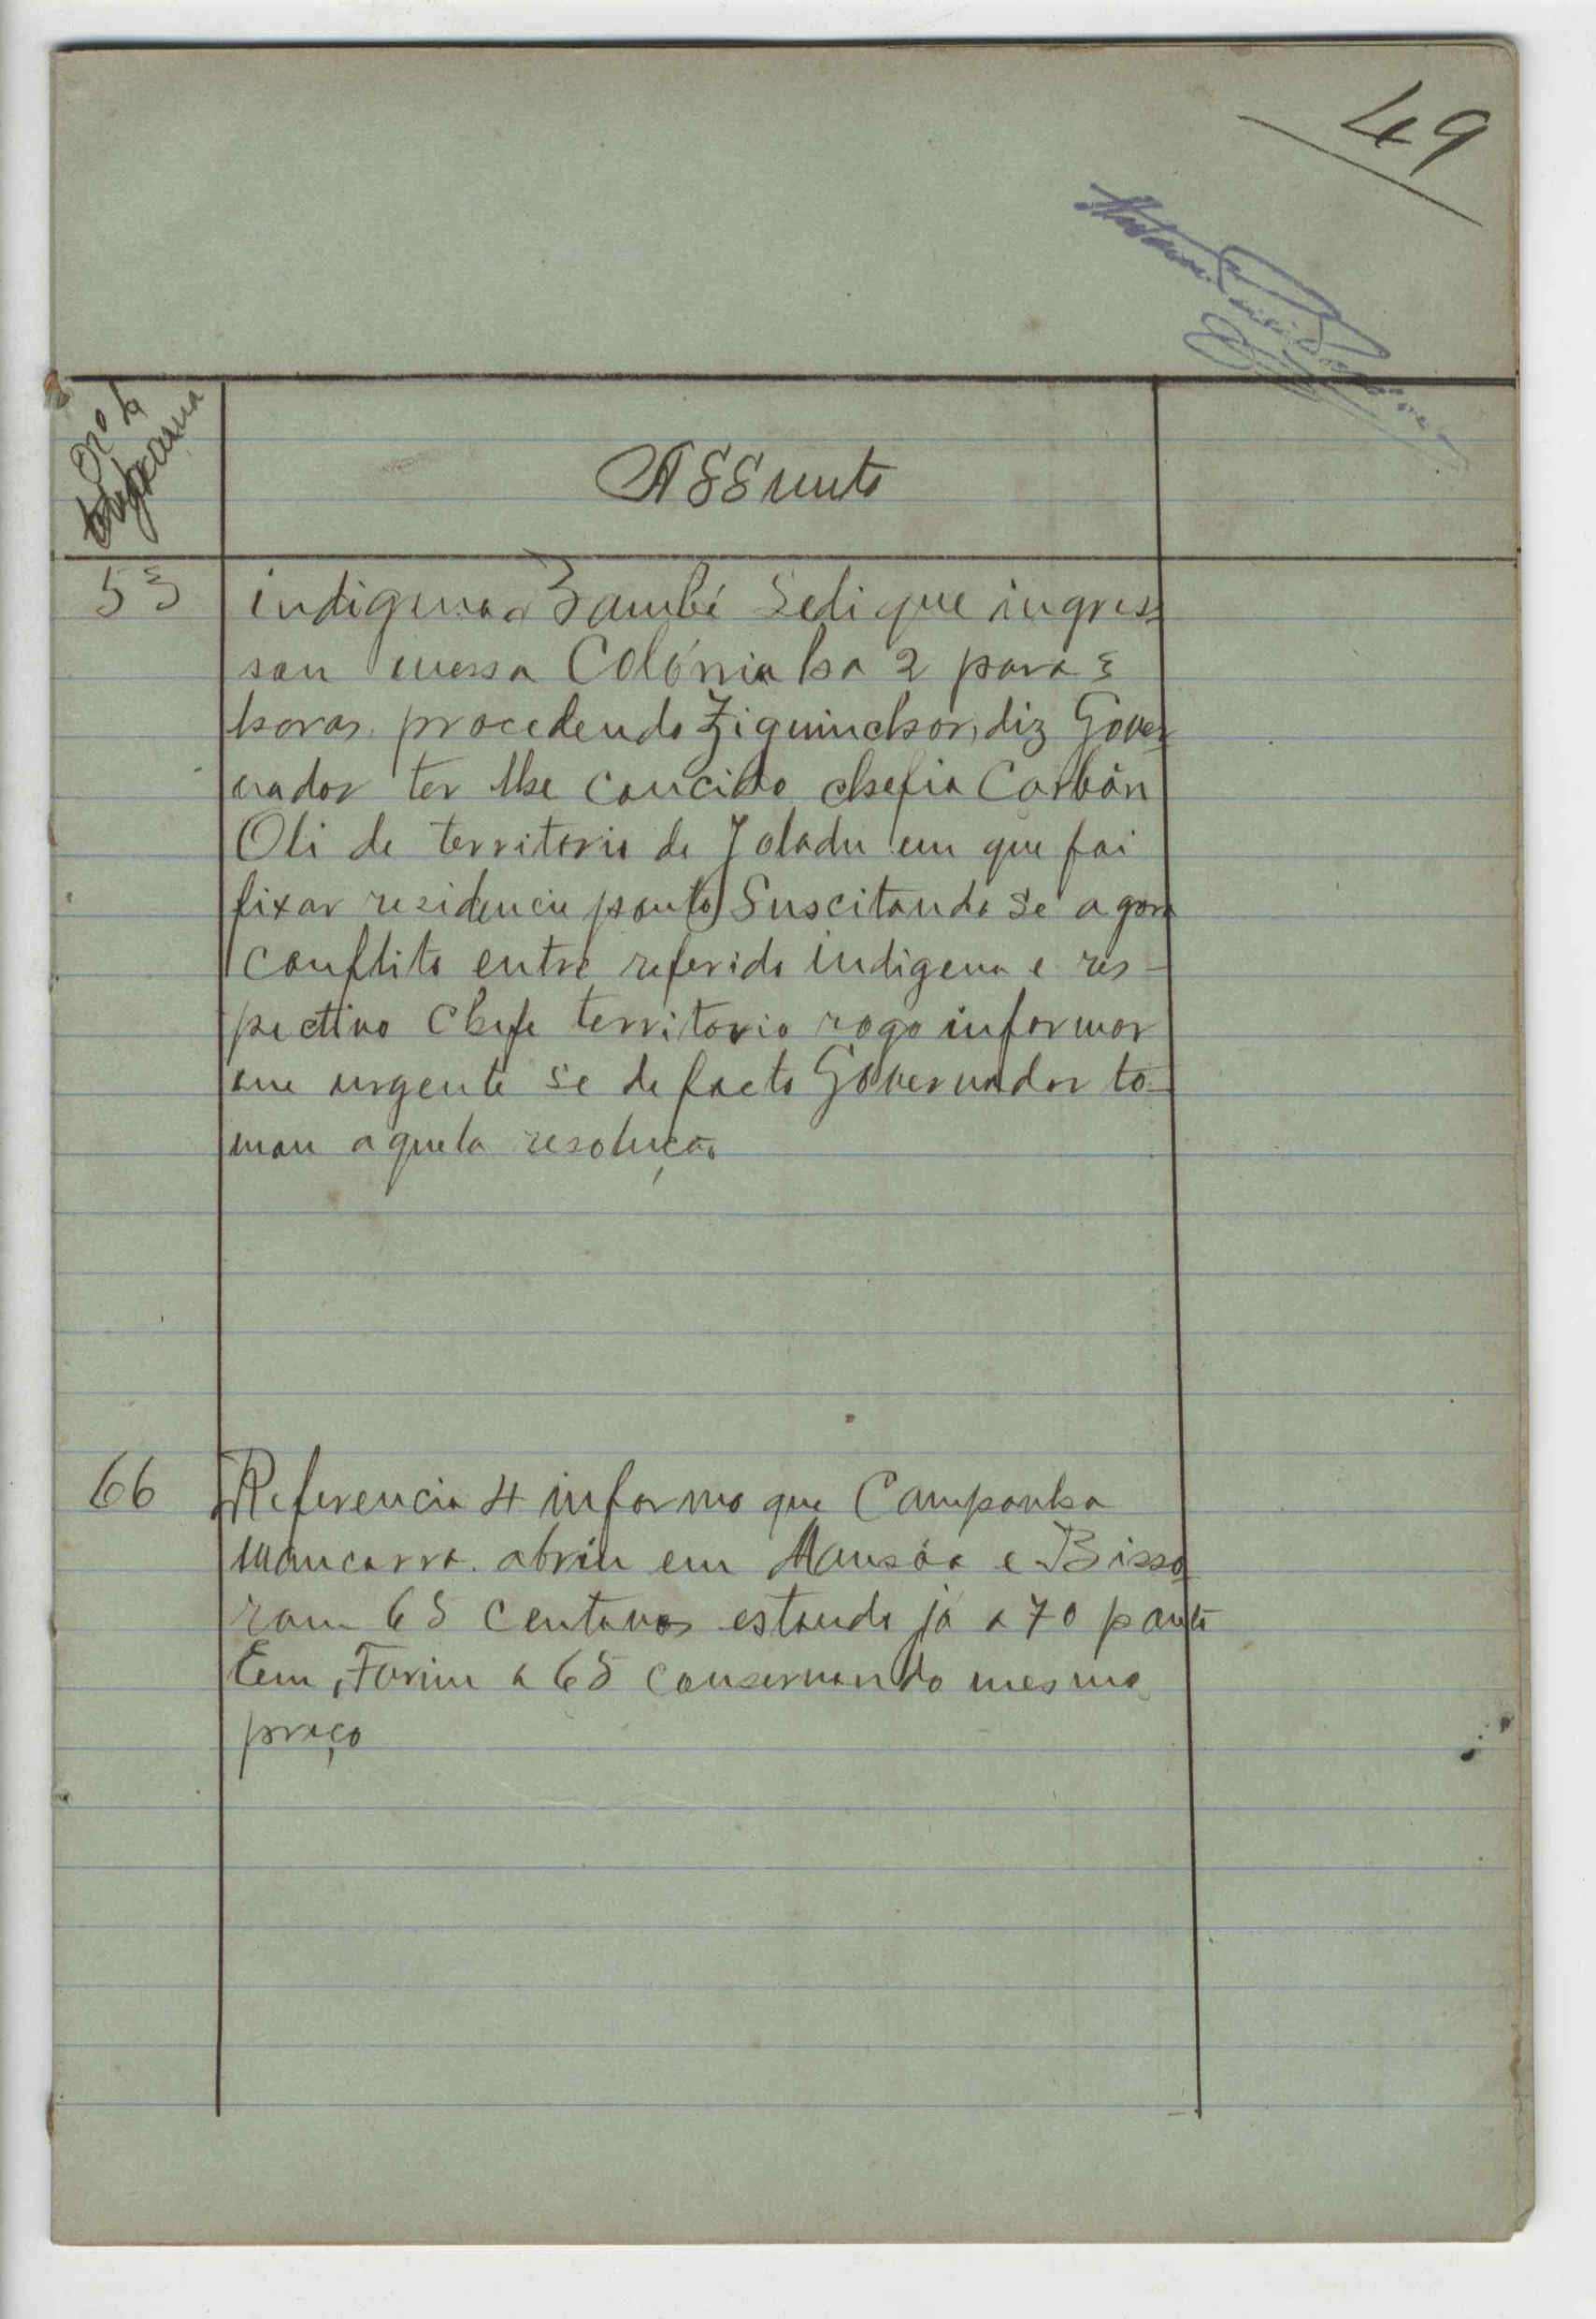 49
Nº do
telegrama
Assunto
53
indigena Bambé Sedi que ingres
sou nessa Colónia ha 2 para 3
horas procedendo Ziguinchor, diz Gover
nador ter lhe concido chefia Carbán
Oli de territorio de Joladu em que foi
fixar residencia ponto) Suscitando se agora
conflito entre referido indigena e res-
pectivo chefe territorio rogo informar
me urgente se de facto Governador to-
mou aquela resolução
66
Referencia 4 informo que Campanha
mancarra abriu em Mansôa e Bisso
ram 65 centavos estando já a 70 ponto
Em Farim a 65 conservando mesmo
preço